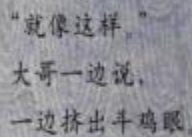 “就像这样。”
大哥一边说，
一边挤出斗鸡眼